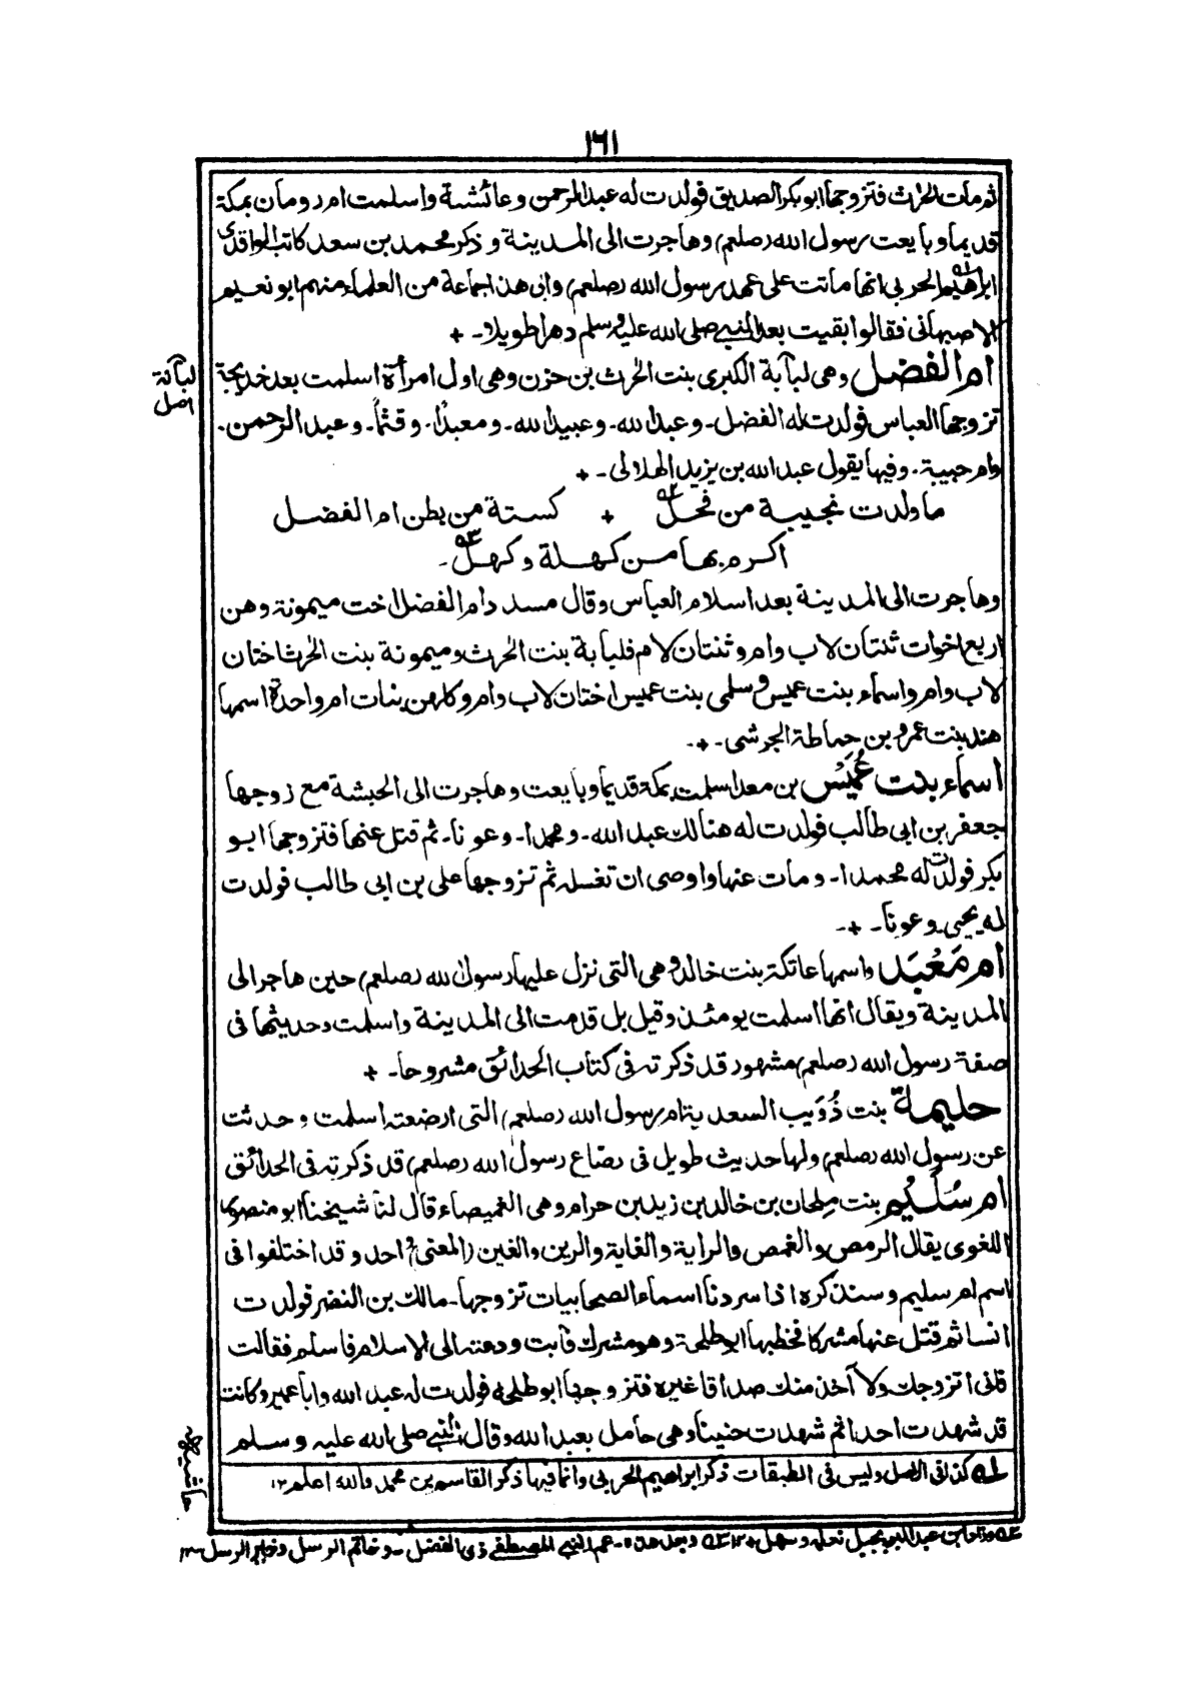 ١٦١
ثم مات الحٰرث فتزوجها ابو بكر الصديق فولدت له عبد الرحمن وعائشة واسلمت ام رومان بمكة
قديما وبايعت رسول الله (صلعم) وهاجرت الى المدينة وذكر محمد بن سعد كاتب الواقدى
ابراهيم الحربى انها ماتت على عهد رسول الله (صلعم) وابى هذا جماعة من العلماء منهم ابو نعيم
الاصبهانى فقالوا بقيت بعد النبى صلى الله عليه وسلم دهرا طويلا۔ +
ام الفضل وهى لبآبة الكبرى بنت الحٰرث بن حزن وهى اول امرأة اسلمت بعد خديجة
لبآنة
اصل
تزوجها العباس فولدت له الفضل۔ وعبد الله۔ وعبيد الله۔ ومعبدًا۔ وقثماً۔ وعبد الرحمن۔
وام حبيبة۔ وفيها يقول عبد الله بن يزيد الهلالى۔ +
ما ولدت نجيبة من فحل + كستة من بطن ام الفضل
اكرم بها من كهلة وكهل۔
وهاجرت الى المدينة بعد اسلام العباس وقال مسدد ام الفضل اخت ميمونة وهن
اربع اخوات ثنتان لاب وام وثنتان لام فلبابة بنت الحٰرث وميمونة بنت الحٰرث اختان
لاب وام واسماء بنت عميس وسلمى بنت عميس اختان لاب وام وكلهن بنات ام واحدة اسمها
هند بنت عمرو بن حماطة الجرشى۔ +۔
اسماء بنت عُمَيْس بن معد اسلمت بمكة قديما وبايعت وهاجرت الى الحبشة مع زوجها
جعفر بن ابى طالب فولدت له هنالك عبد الله۔ ومحمدا۔ وعونا۔ ثم قتل عنها فتزوجها ابو
بكر فولدت له محمدا۔ ومات عنها واوصى ان تغسله ثم تزوجها على بن ابى طالب فولدت
له يحيى وعونا۔ +۔
ام مَعْبَد واسمها عاتكة بنت خالد وهى التى نزل عليها رسول الله (صلعم) حين هاجر الى
المدينة ويقال انها اسلمت يومئذ وقيل بل قدمت الى المدينة واسلمت وحديثها فى
صفة رسول الله (صلعم) مشهور قد ذكرته فى كتاب الحدائق مشروحا۔ +
حليمة بنت ذُوَيب السعدية ام رسول الله (صلعم) التى ارضعته اسلمت وحدثت
عن رسول الله (صلعم) ولها حديث طويل فى رضاع رسول الله (صلعم) قد ذكرته فى الحدائق
ام سُلَيْم بنت مِلحان بن خالد بن زيد بن حرام وهى الغميصاء قال لنا شيخنا ابو منصور
اللغوى يقال الرمص والغمص والراية والغاية والرين والغين (المعنى واحد) وقد اختلفوا فى
اسم ام سليم وسنذكره اذا سردنا اسماء الصحابيات تزوجها۔ مالك بن النضر فولدت
انسا ثم قتل عنها مشركا فخطبها ابو طلحة وهو مشرك فابت ودعته الى الاسلام فاسلم فقالت
فانى اتزوجك ولا آخذ منك صداقا غيره فتزوجها ابو طلحة فولدت له عبد الله وابا عمير وكانت
قد شهدت احدا ثم شهدت حنينا وهى حامل بعبد الله وقال النبى صلى الله عليه وسلم
له كذا فى الاصل وليس فى الطبقات ذكر ابراهيم الحربى وانما فيها ذكر القاسم بن محمد والله اعلم ١٢
حاشيه
وزاد ابن عبد البر بجبل نعله وسهل وبعد هذه۔ عم النبى المصطفى ذى الفضل۔ وخاتم الرسل وخير الرسل ١٢